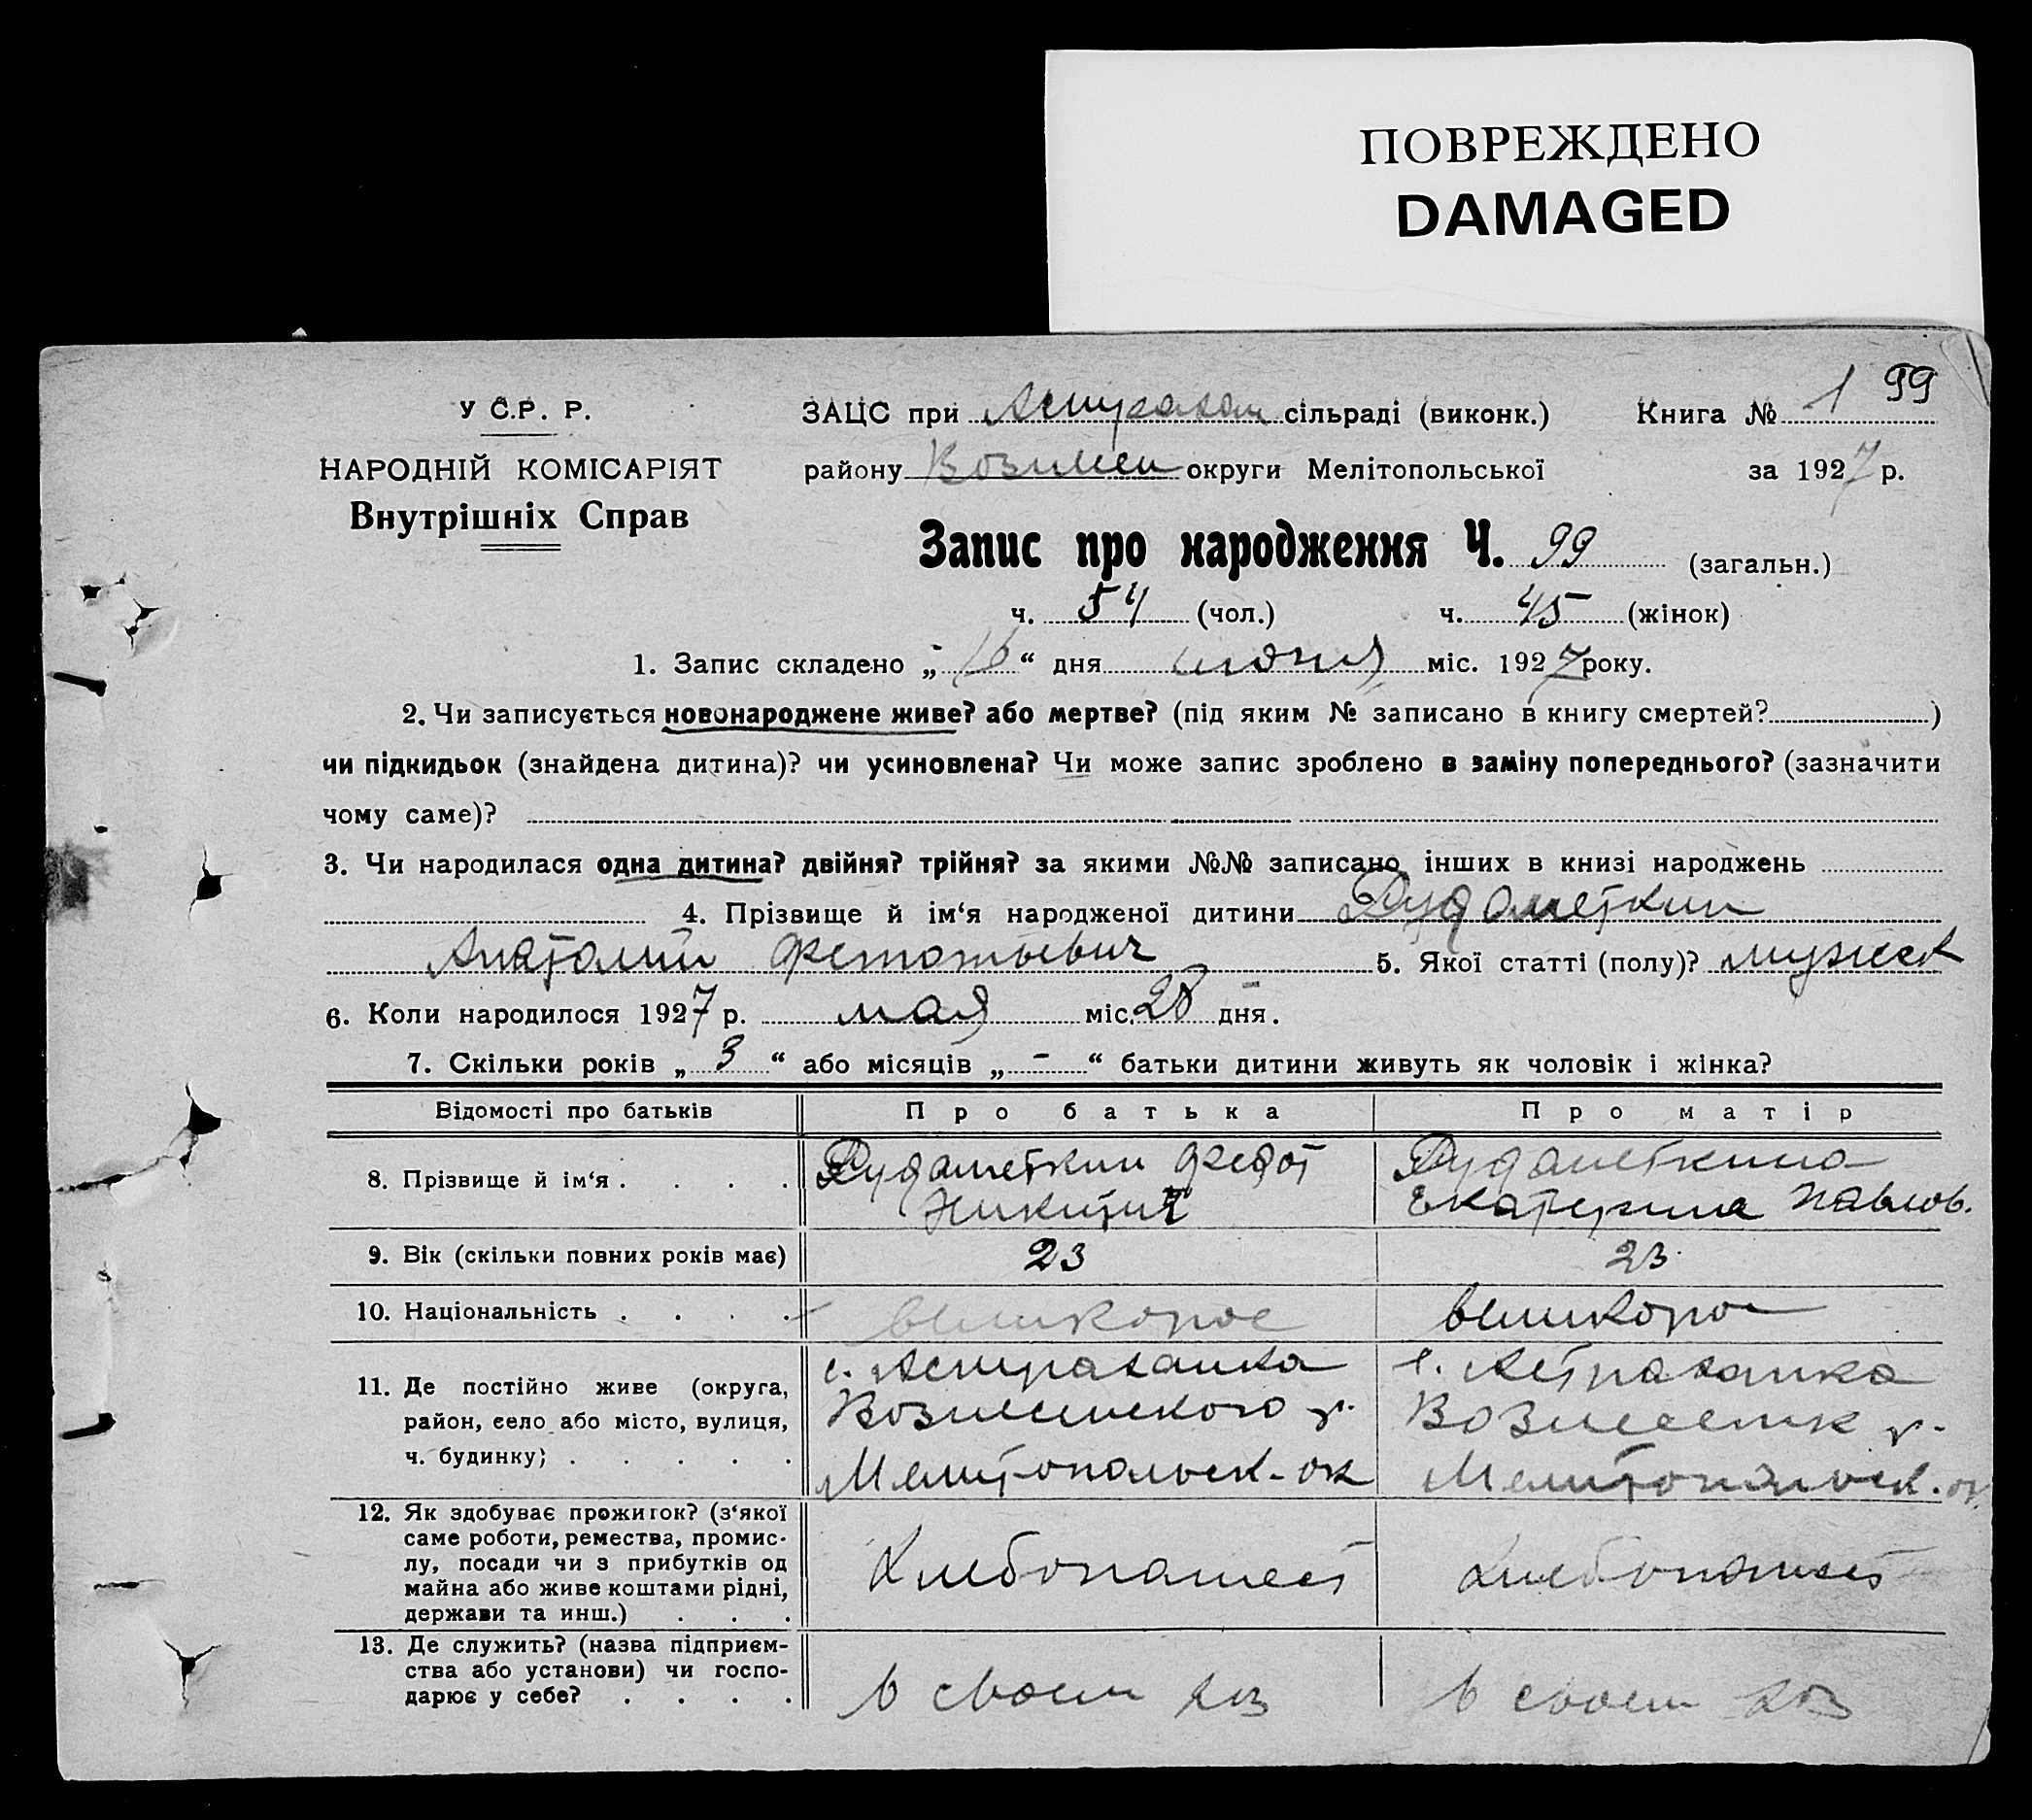 ПОВРЕЖДЕНО
DAMAGED
У С.Р. Р.
НАРОДНІЙ КОМІСАРІЯТ
Внутрішніх Справ
ЗАЦС при Астрахан сільраді (виконк.) Книга № 1 99
району Вознесен округи Мелітопольської за 1927 р.
Запис про народження Ч. 99 (загальн.)
ч. 54 (чол.) ч. 45 (жінок)
1. Запис складено „16“ дня июня міс. 1927 року.
2. Чи записується новонароджене живе? або мертве? (під яким № записано в книгу смертей? )
чи підкидьок (знайдена дитина)? чи усиновлена? Чи може запис зроблено в заміну попереднього? (зазначити
чому саме)?
3. Чи народилася одна дитина? двійня? трійня? за якими №№ записано інших в книзі народжень
4. Прізвище й ім‘я народженої дитини Рудаметкин
Анатолий Федотьевич 5. Якої статті (полу)? мужеск
6. Коли народилося 1927 р. мая міс. 28 дня.
7. Скільки років „ 3 “ або місяців „ - “ батьки дитини живуть як чоловік і жінка?
Відомості про батьків Про батька Про матір
8. Прізвище й ім‘я . . . . Рудаметкин Федот Рудаметкина
Никитич Екатерина Павлов.
9. Вік (скільки повних років має) 23 23
10. Національність . . . . великорос великорос
11. Де постійно живе (округа, с. Астраханка с. Астраханка
район, село або місто, вулиця, Вознесенского р. Вознесенск р.
ч. будинку) . . . . . Мелитопольск-ок Мелитопольск. ок
12. Як здобуває прожиток? (з‘якої
саме роботи, ремества, промис-
лу, посади чи з прибутків од
майна або живе коштами рідні,
держави та инш.) . . . Хлебопашест Хлебопашест
13. Де служить? (назва підприєм-
ства або установи) чи госпо-
дарює у себе? . . . . в своем хоз в своем хоз